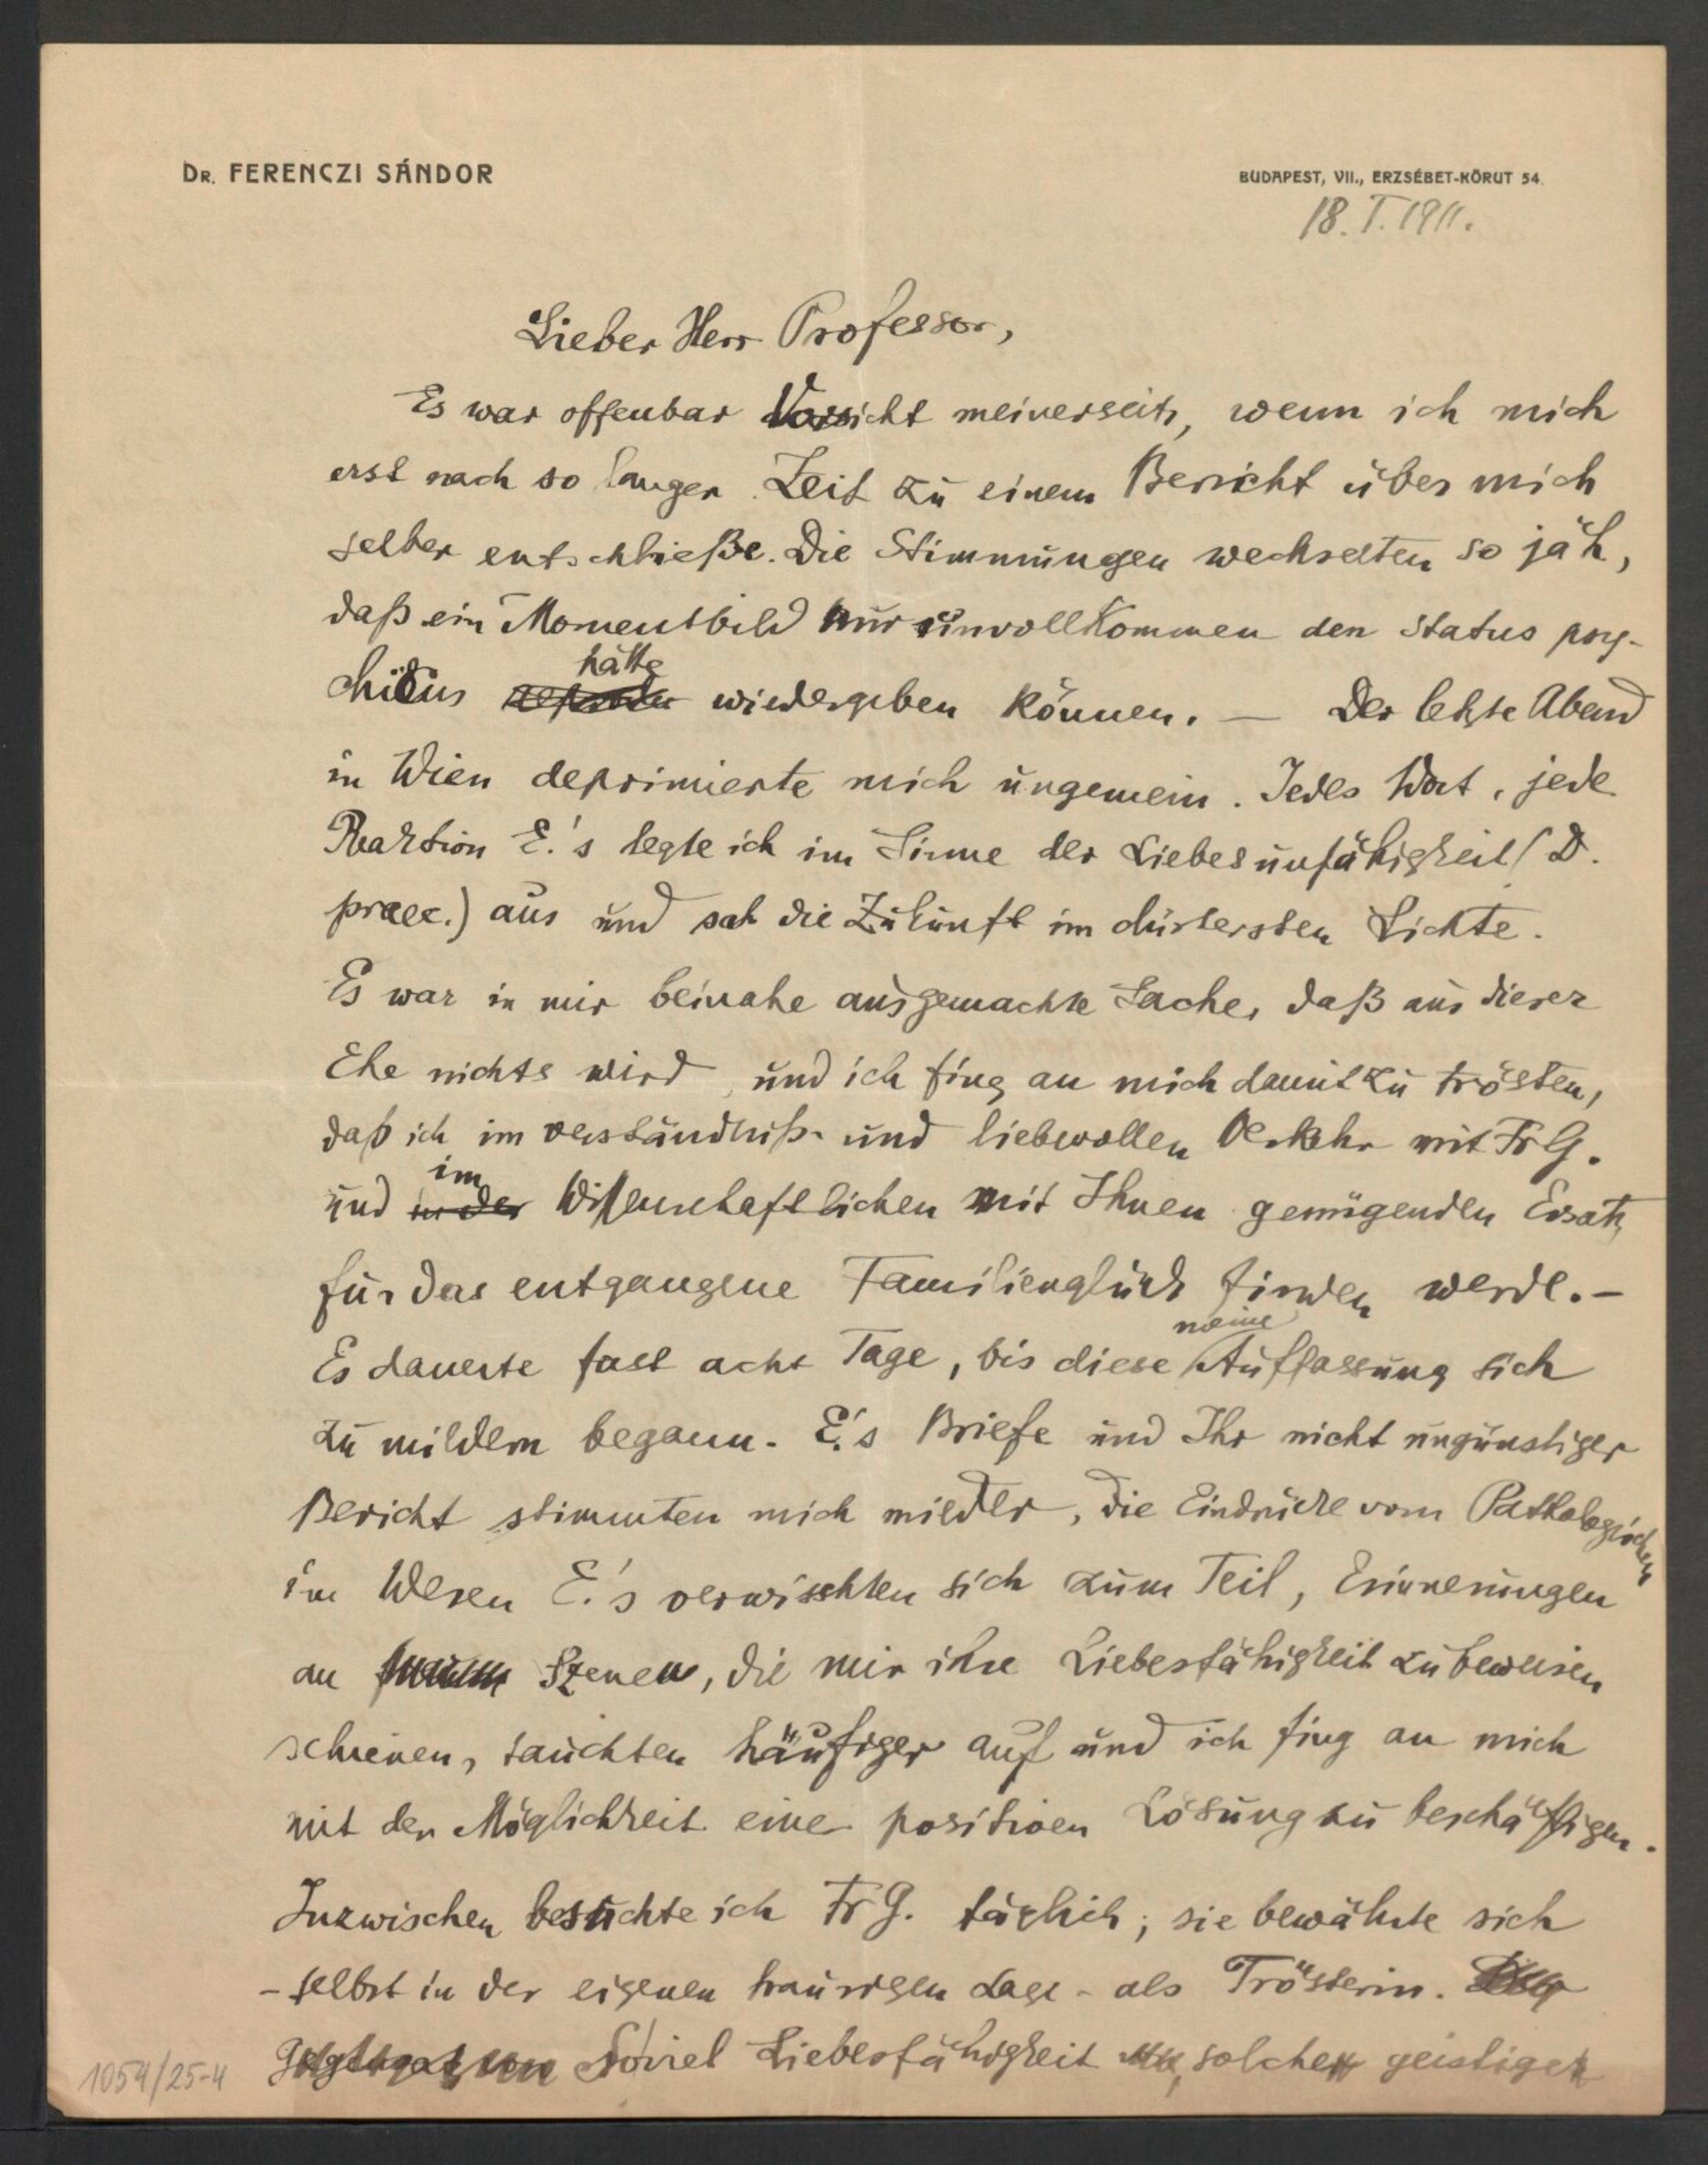 DR. FERENCZI SÁNDOR
BUDAPEST, VII., ERZSÉBET-KÖRUT 54.
18. I. 1911.
Lieber Herr Professor,
Es war offenbar Vorsicht meinerseits, wenn ich mich
erst nach so langer Zeit zu einem Bericht über mich
selber entschließe. Die Stimmungen wechselten so jäh,
daß ein Momentbild nur unvollkommen den status psy-
chicus hätte wiedergeben können. — Der letzte Abend
in Wien deprimierte mich ungemein. Jedes Wort, jede
Reaktion E.'s legte ich im Sinne der Liebesunfähigkeit (D.
praec.) aus und sah die Zukunft im düstersten Lichte.
Es war in mir beinahe ausgemachte Sache, daß aus dieser
Ehe nichts wird, und ich fing an mich damit zu trösten,
daß ich im verständniß- und liebevollen Verkehr mit Fr G.
und im Wissenschaftlichen mit Ihnen genügenden Ersatz
für das entgangene Familienglück finden werde. –
Es dauerte fast acht Tage, bis diese meine Auffassung sich
zu mildern begann. E.'s Briefe und Ihr nicht ungünstiger
Bericht stimmten mich milder, die Eindrücke vom Pathologischen
im Wesen E.'s verwischten sich zum Teil, Erinnerungen
an Szenen, die mir ihre Liebesfähigkeit zu beweisen
schienen, tauchten häufiger auf und ich fing an mich
mit der Möglichkeit einer positiven Lösung zu beschäftigen.
Inzwischen besuchte ich Fr G. täglich; sie bewährte sich
– selbst in der eigenen traurigen Lage – als Trösterin.
Soviel Liebesfähigkeit, solche geistige
1054/25-4